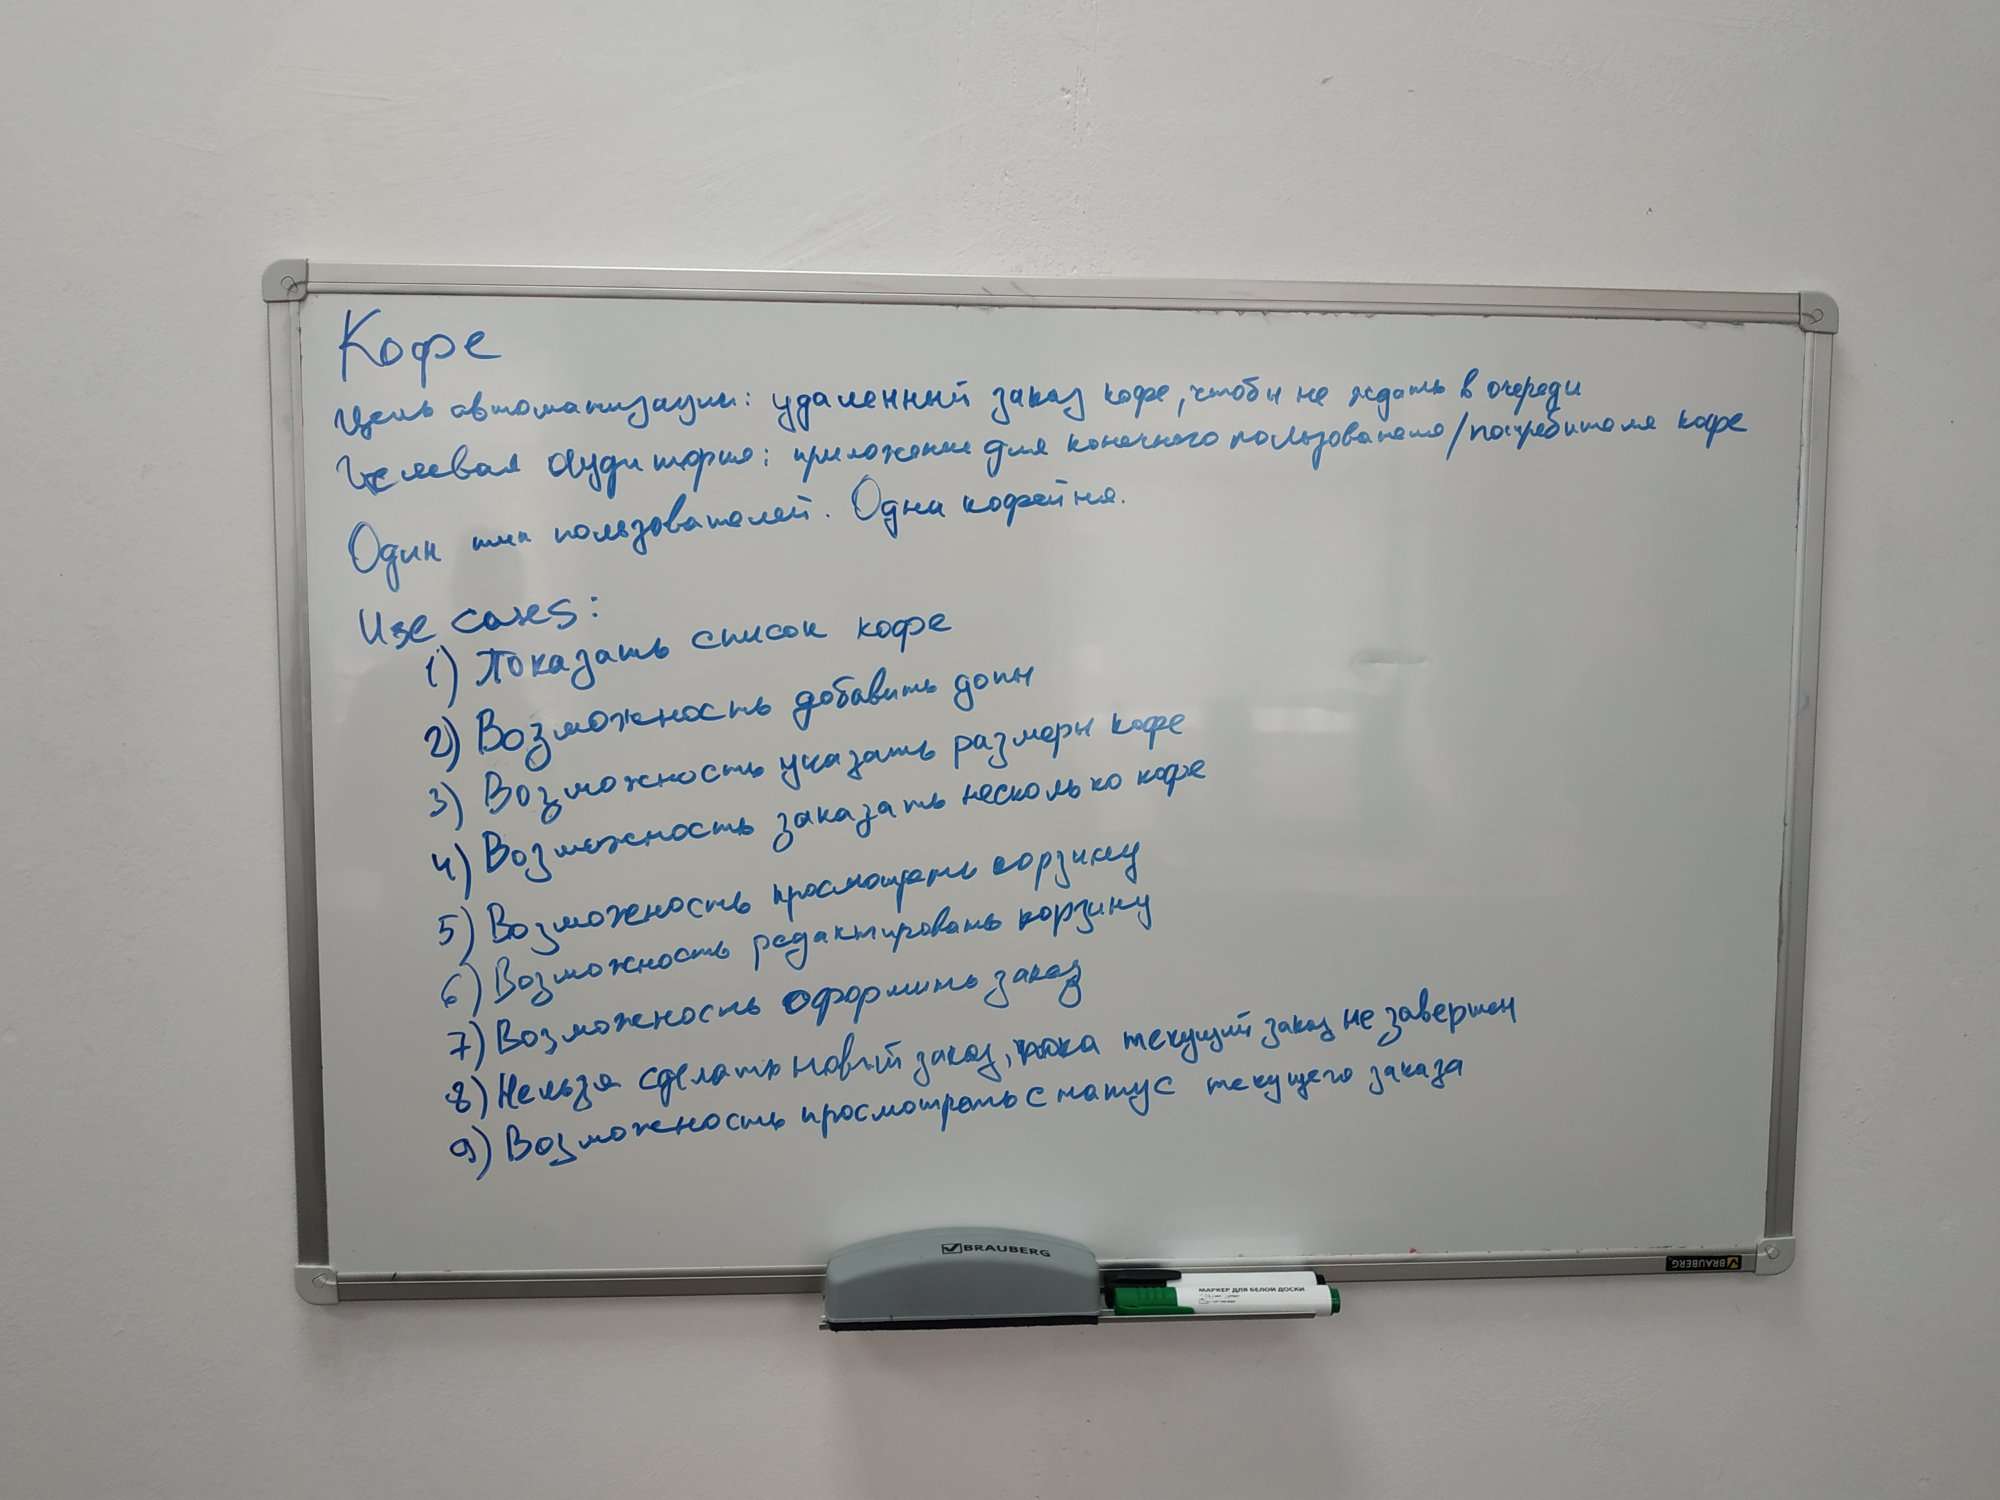 Кофе
Цель автоматизации: удаленный заказ кофе, чтобы не ждать в очереди
Целевая аудитория: приложение для конечного пользователя/потребителя кофе
Один тип пользователей. Одна кофейня.
Use cases:
1) Показать список кофе
2) Возможность добавить допы
3) Возможность указать размеры кофе
4) Возможность заказать несколько кофе
5) Возможность просмотреть корзину
6) Возможность редактировать корзину
7) Возможность оформить заказ
8) Нельзя сделать новый заказ, пока текущий заказ не завершен
9) Возможность просмотреть статус текущего заказа
BRAUBERG
BRAUBERG
МАРКЕР ДЛЯ БЕЛОЙ ДОСКИ